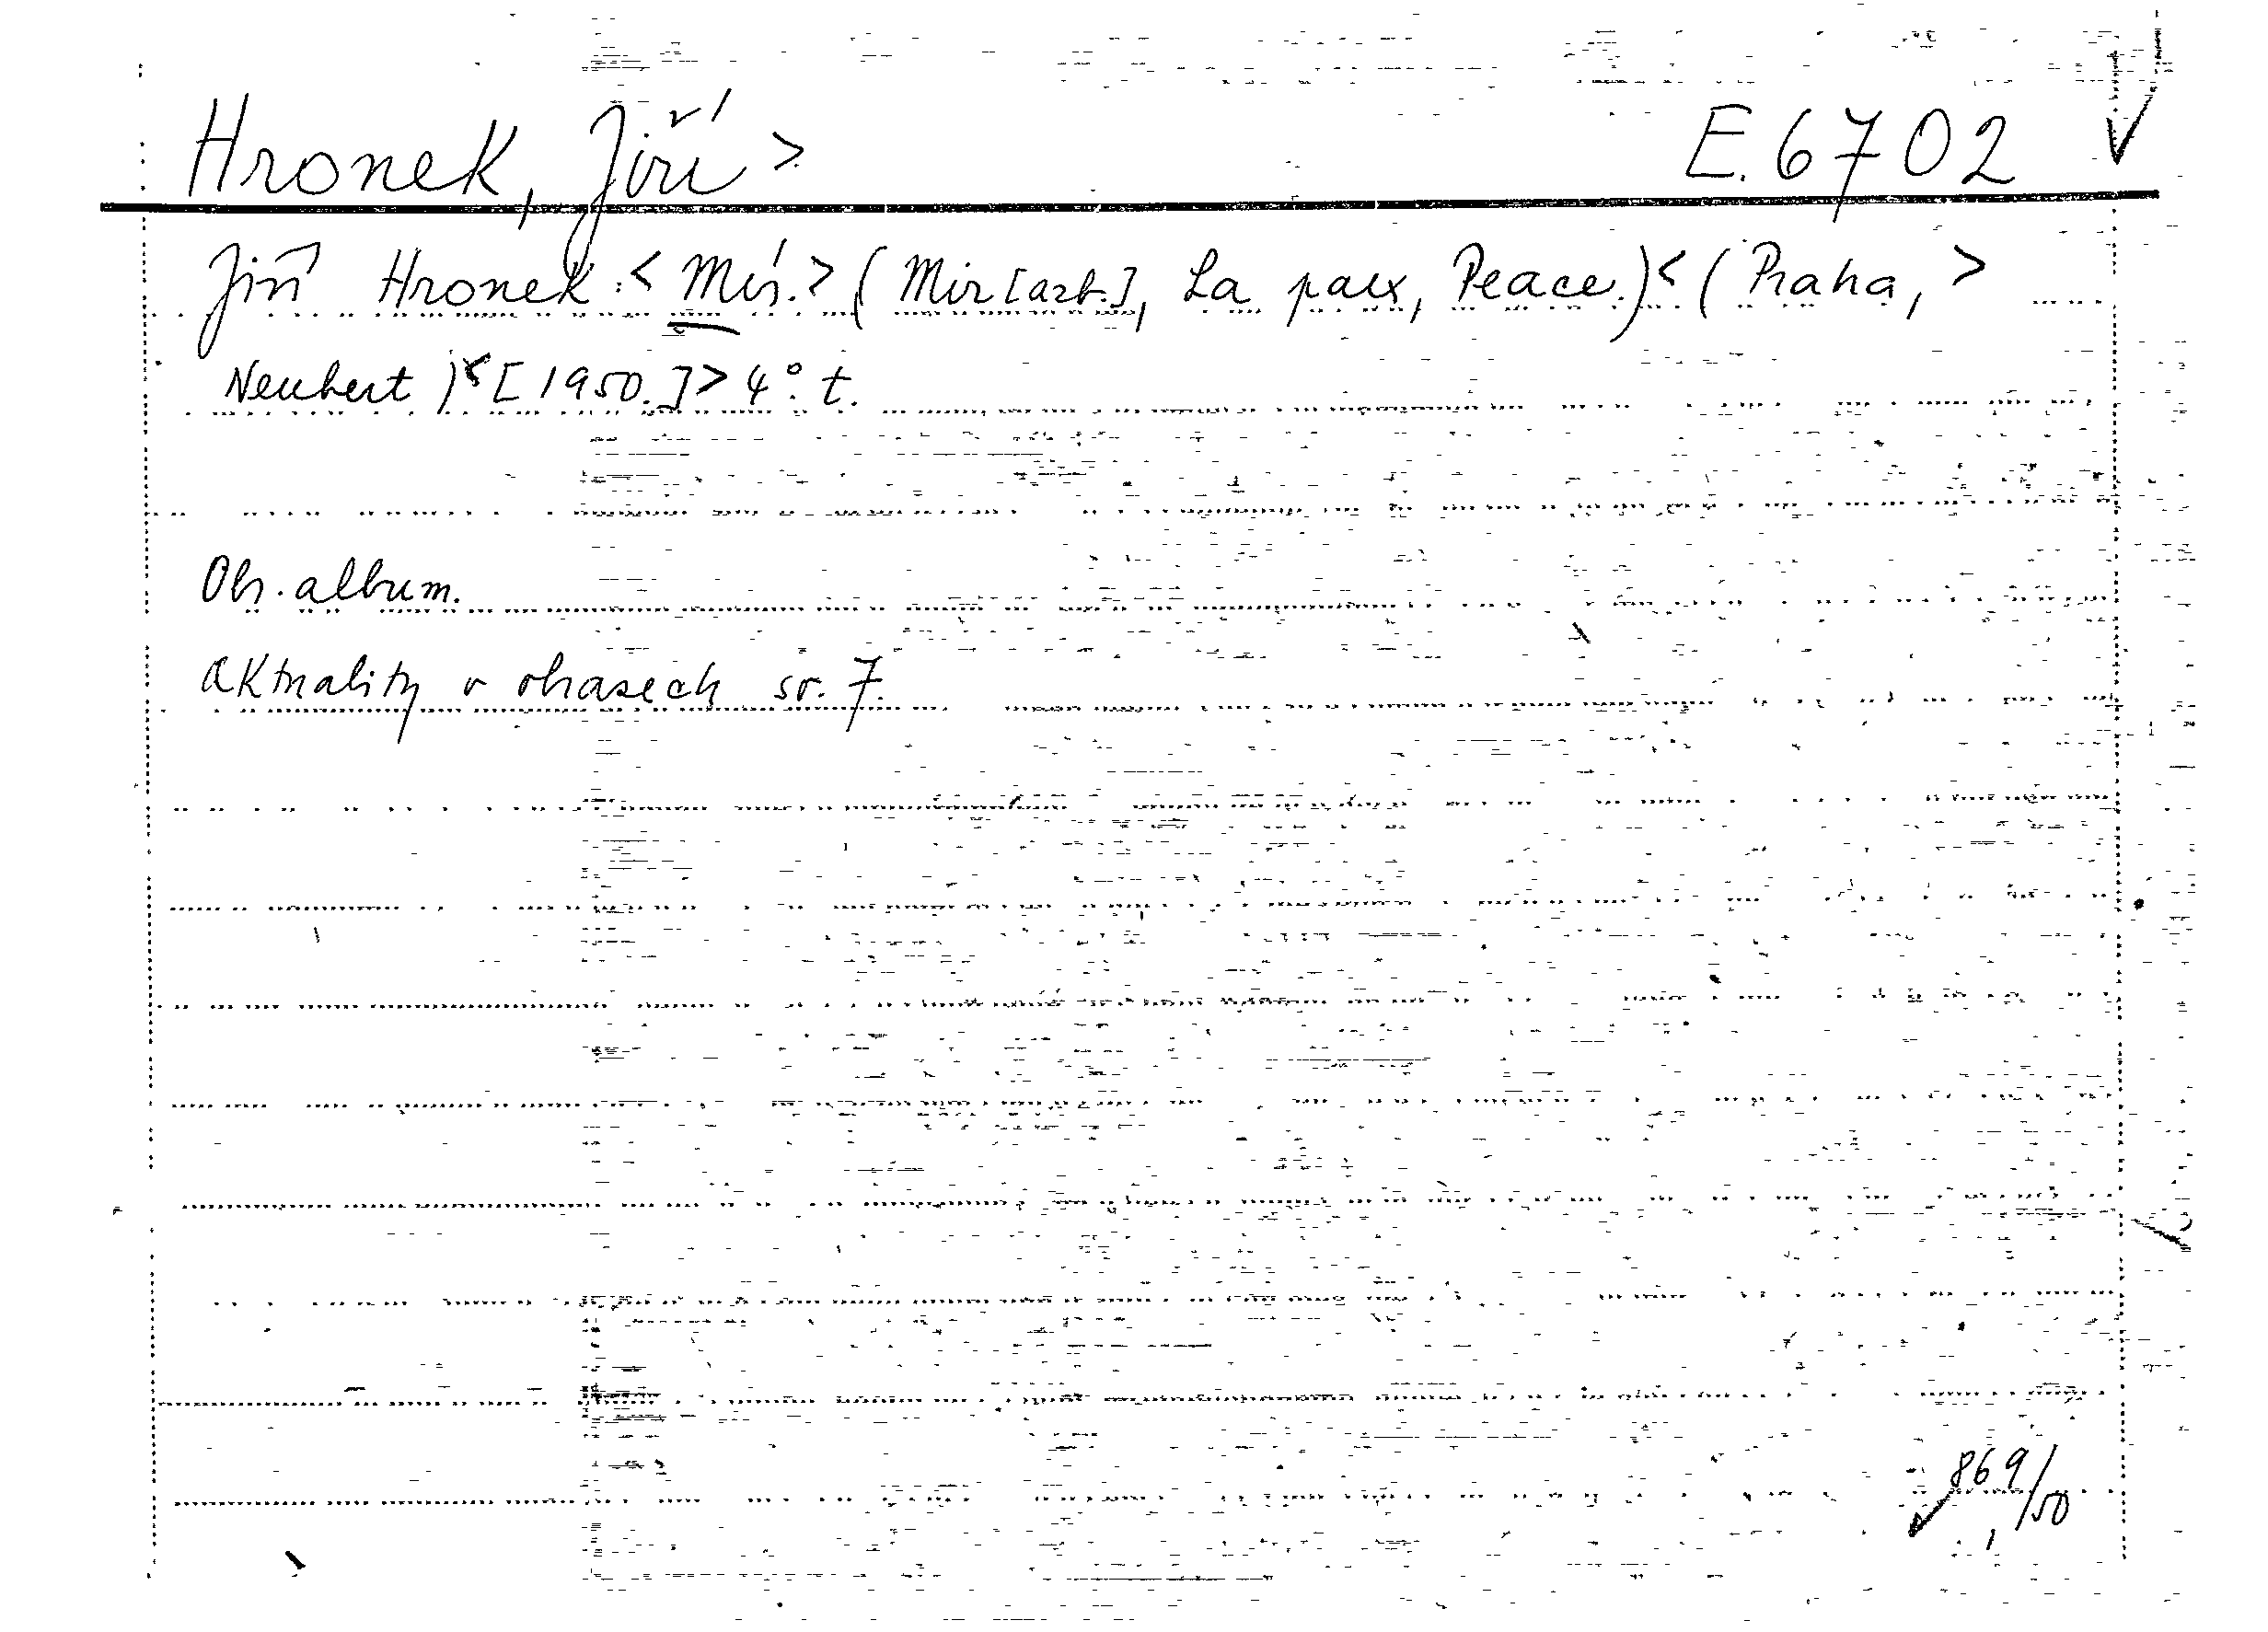 Hronek, Jiří > E. 6702
Jiří Hronek: < Mír. > (Mir [azb.], La paix, Peace.) < (Praha, >
Neubert) < [1950.] > 4°. t.
Obr. album.
Aktuality v obrazech sv. 7.
869/50